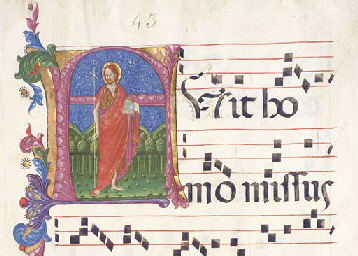 43
FVit ho
mo missus